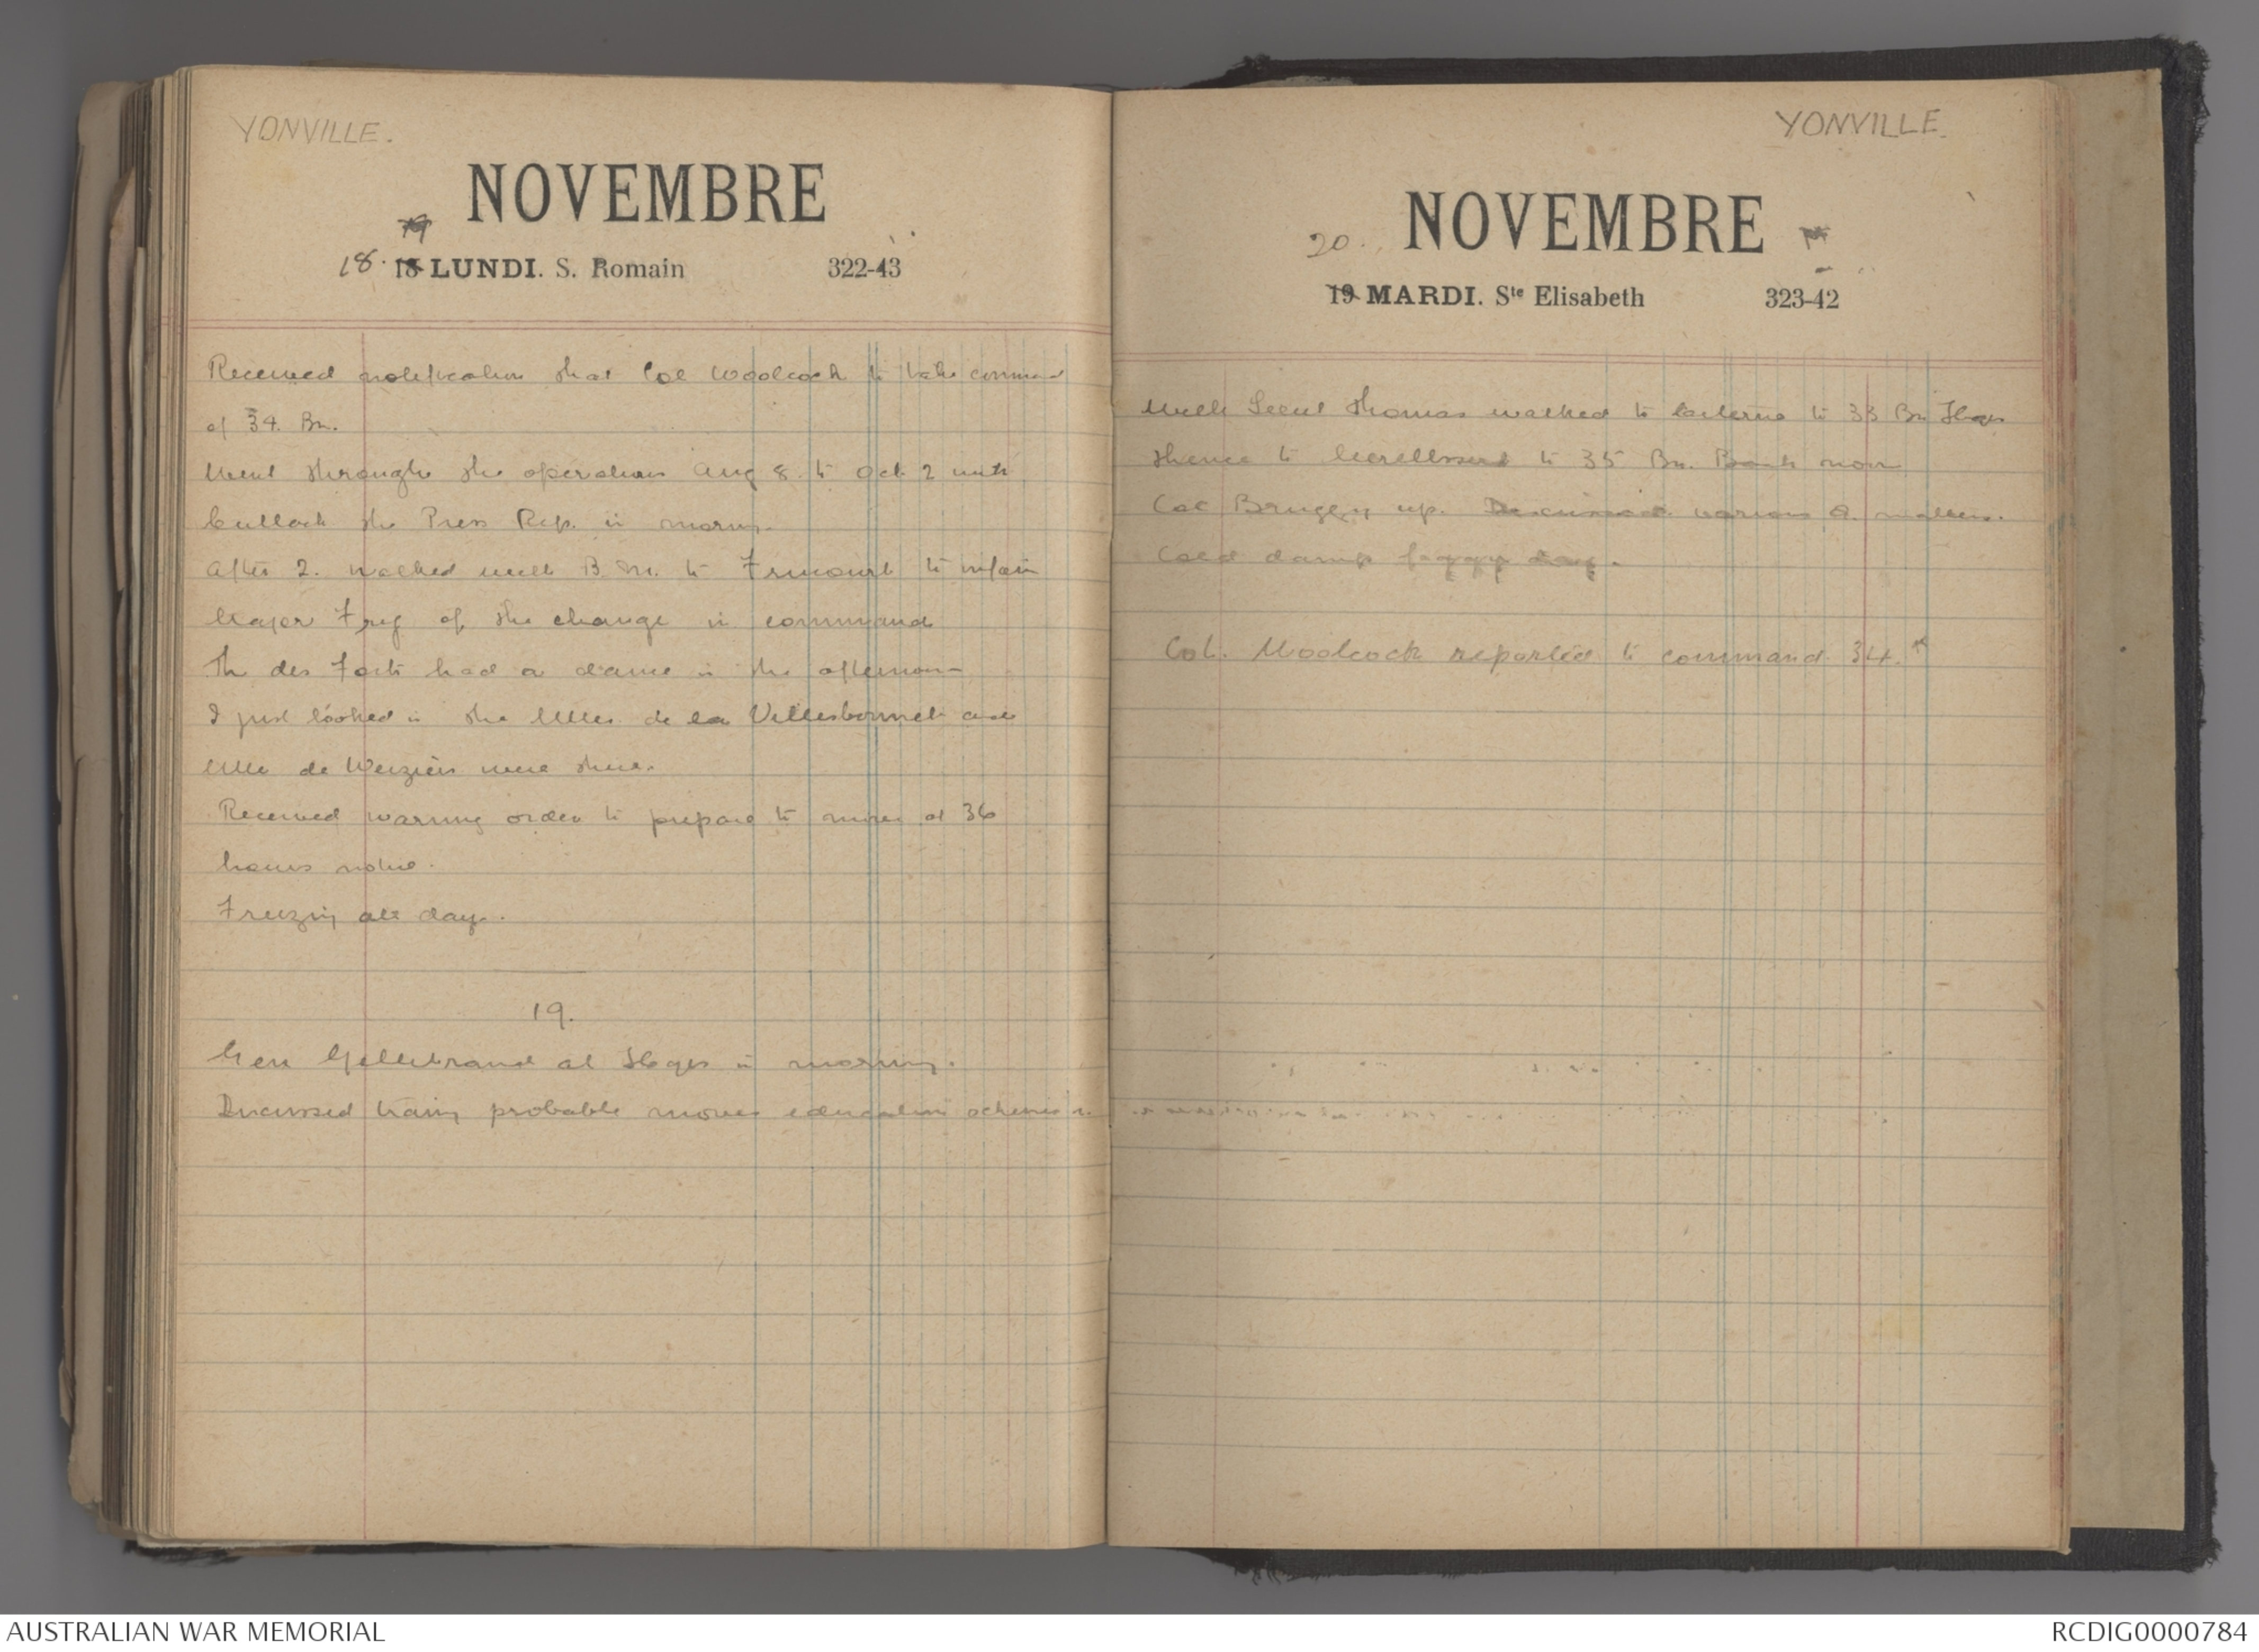 YONVILLE.
NOVEMBRE
19
18. 18 LUNDI. S. Romain 322-43
Received notification that Col Woolcock to take command
of 34. Bn.
Went through the operations Aug 8. to Oct 2 with
Cullock the Press Rep. in morng.
After 2. walked with B. M. to Frucourt to inform
Major Fry of the change in command
The des Forts had a dance in the afternoon
I just looked in the Mlles de la Villesbrunet and
Mlle de were there.
Received warning order to prepare to move at 36
hours notice.
Freezing all day.
19.
Gen Gellibrand at Hqrs in morning.
Discussed traing probable moves education schemes
YONVILLE.
NOVEMBRE
20.
19 MARDI. Ste Elisabeth 323-42
With Lieut Thomas walked to to 33 Bn Hqrs
thence to to 35 Bn. Back noon
Col Bruggy up. Discussed various Q. matters.
Cold damp foggy day.
Col. Woolcock reported to command 34.th
AUSTRALIAN WAR MEMORIAL
RCDIG0000784